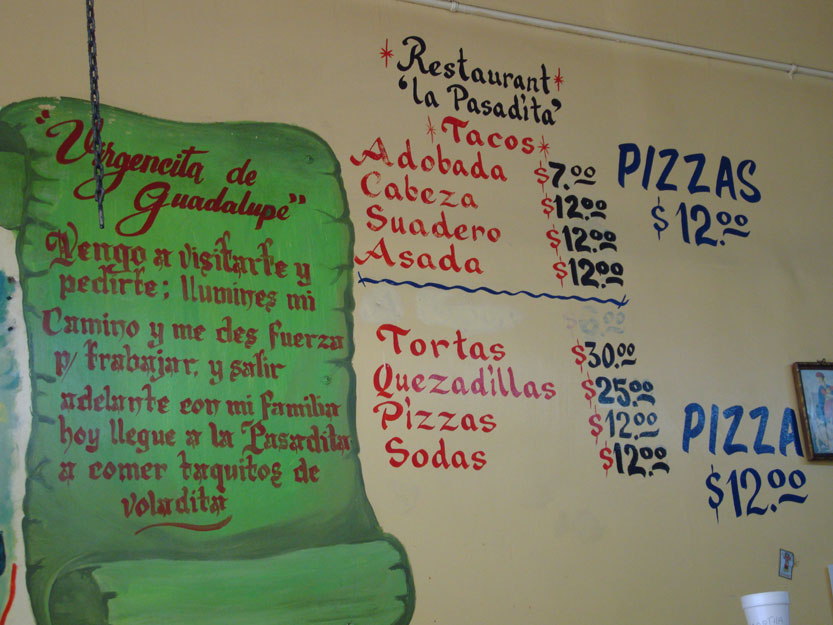 "Virgencita de
Guadalupe"
Vengo a visitarte y
pedirte; Ilumines mi
Camino y me des fuerza
p/ trabajar, y salir
adelante con mi familia
hoy llegue a la Pasadita
a comer taquitos de
voladita
*Restaurant*
"la Pasadita"
*Tacos*
Adobada $7.00
Cabeza $12.00
Suadero $12.00
Asada $12.00
Tortas $30.00
Quezadillas $25.00
Pizzas $12.00
Sodas $12.00
PIZZAS
$12.00
PIZZA
$12.00